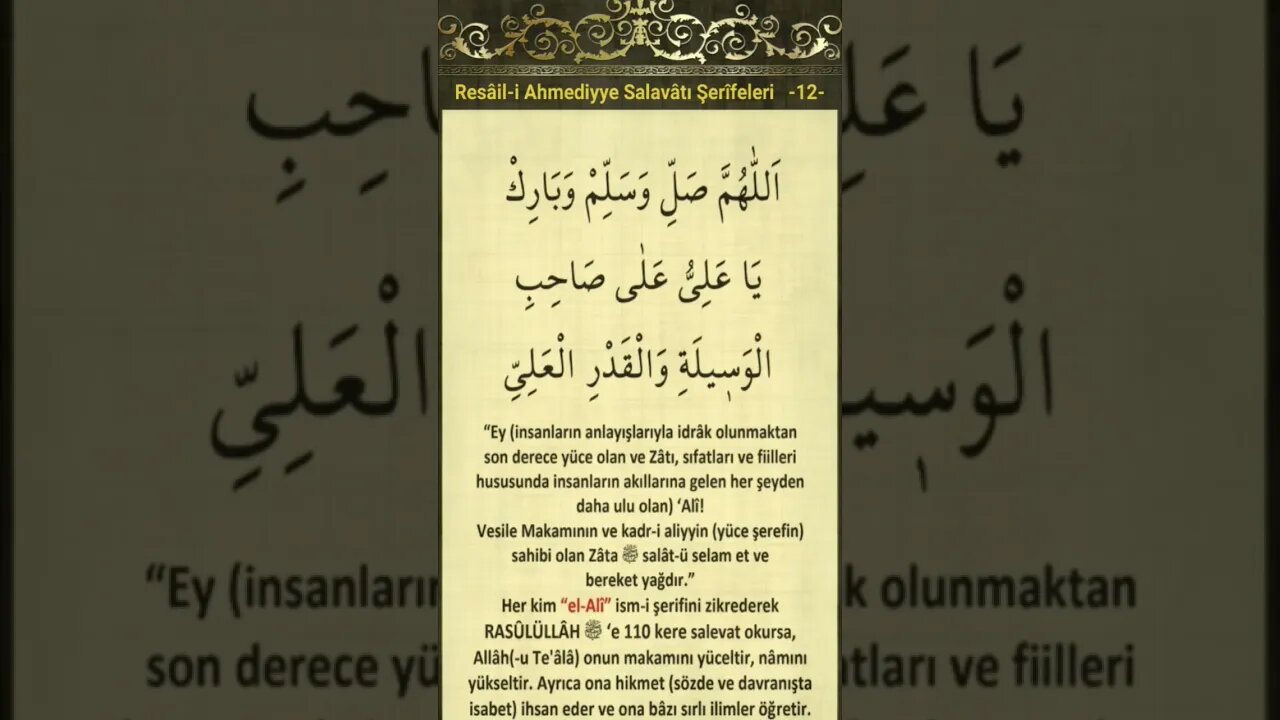 Resâil-i Ahmediyye Salavâtı Şerîfeleri -12-
اَللّٰهُمَّ صَلِّ وَسَلِّمْ وَبَارِكْ
يَا عَلِيُّ عَلٰى صَاحِبِ
الْوَسٖيلَةِ وَالْقَدْرِ الْعَلِيِّ
“Ey (insanların anlayışlarıyla idrâk olunmaktan
son derece yüce olan ve Zâtı, sıfatları ve fiilleri
hususunda insanların akıllarına gelen her şeyden
daha ulu olan) ‘Alî!
Vesile Makamının ve kadr-i aliyyin (yüce şerefin)
sahibi olan Zâta ﷺ salât-ü selam et ve
bereket yağdır.”
Her kim “el-Alî” ism-i şerifini zikrederek
RASÛLÜLLÂH ﷺ ‘e 110 kere salevat okursa,
Allâh(-u Te'âlâ) onun makamını yüceltir, nâmını
yükseltir. Ayrıca ona hikmet (sözde ve davranışta
isabet) ihsan eder ve ona bâzı sırlı ilimler öğretir.